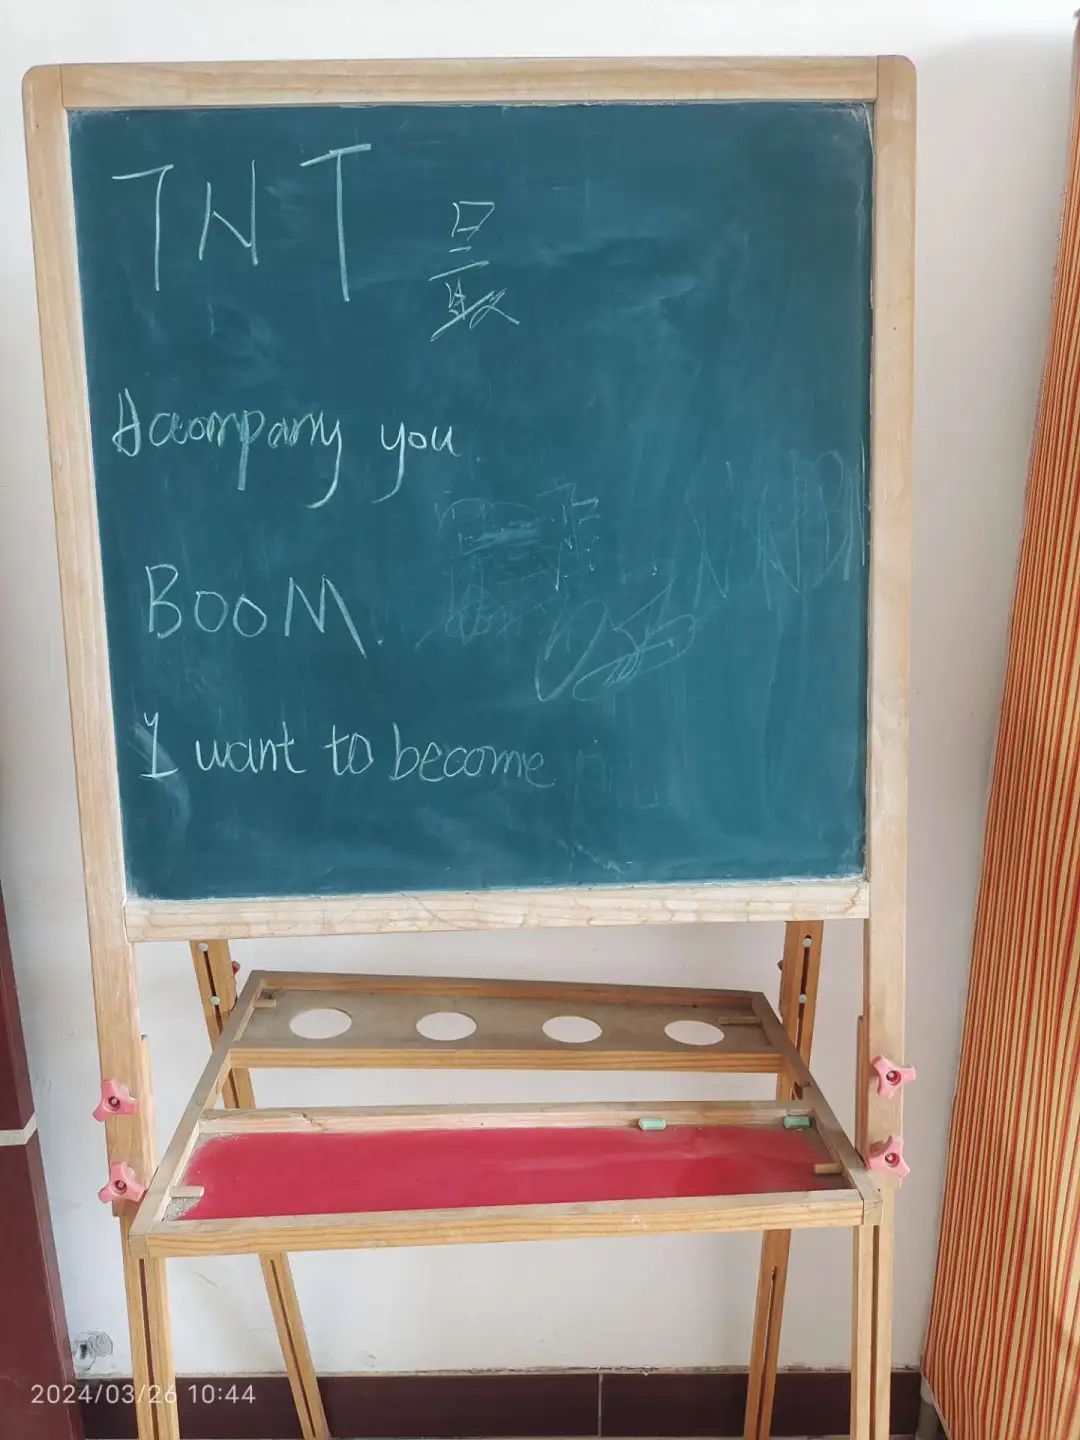 TNT 最
Accompany you
BOOM.
I want to become
2024/03/26 10:44